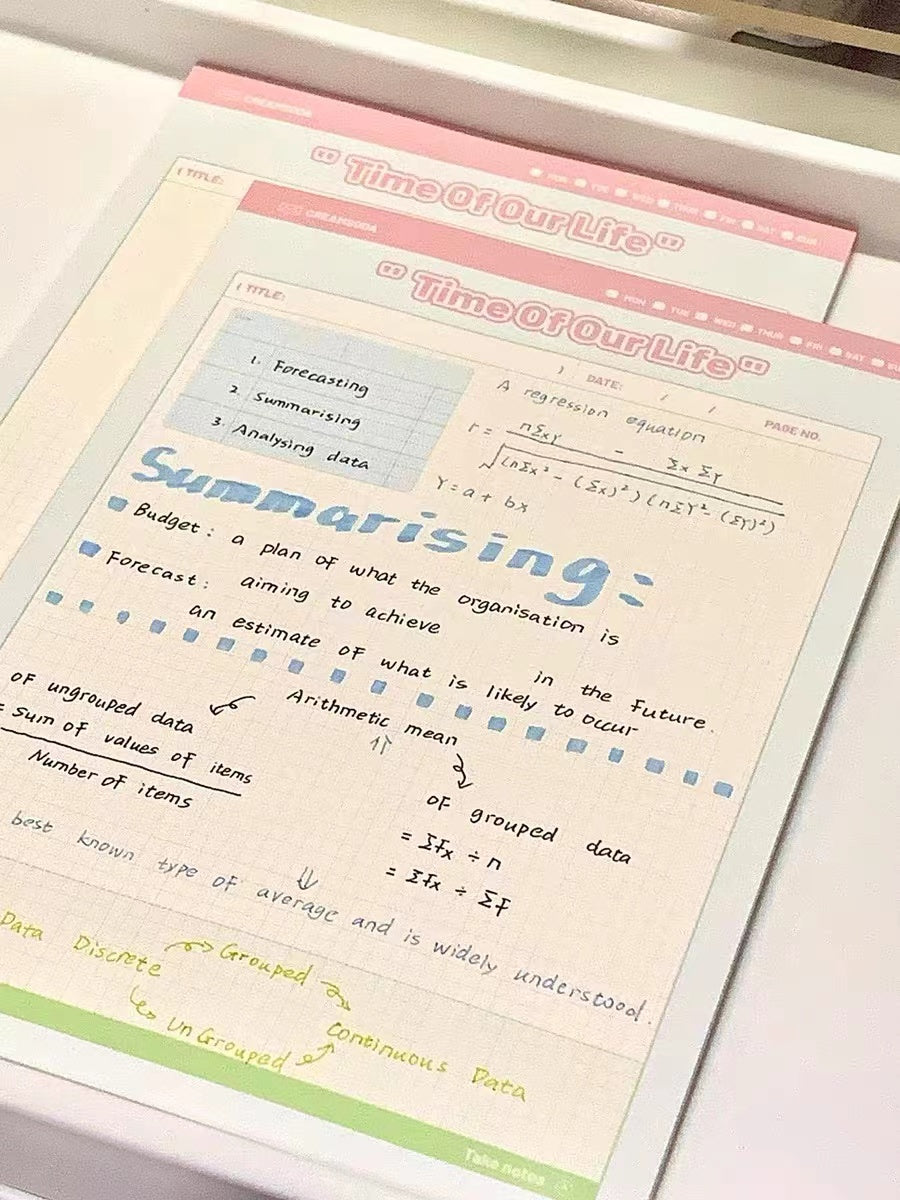 CREAMSODA
MON TUE WED THUR FRI SAT SUN
"Time Of Our Life"
( TITLE:
CREAMSODA
MON TUE WED THUR FRI SAT
"Time Of Our Life"
( TITLE:
) DATE: / / PAGE NO.
1. Forecasting
2. Summarising
3. Analysing data
A regression equation
r = nΣxY - Σx ΣY
√(nΣx² - (Σx)²) (nΣY² - (ΣY)²)
Y = a + bx
Summarising:
Budget: a plan of what the organisation is
aiming to achieve in the future.
Forecast: an estimate of what is likely to occur
Arithmetic mean
of ungrouped data
= Sum of values of items
Number of items
of grouped data
= Σfx ÷ n
= Σfx ÷ Σf
best known type of average and is widely understood.
Data Discrete Grouped
UnGrouped Continuous Data
Take notes